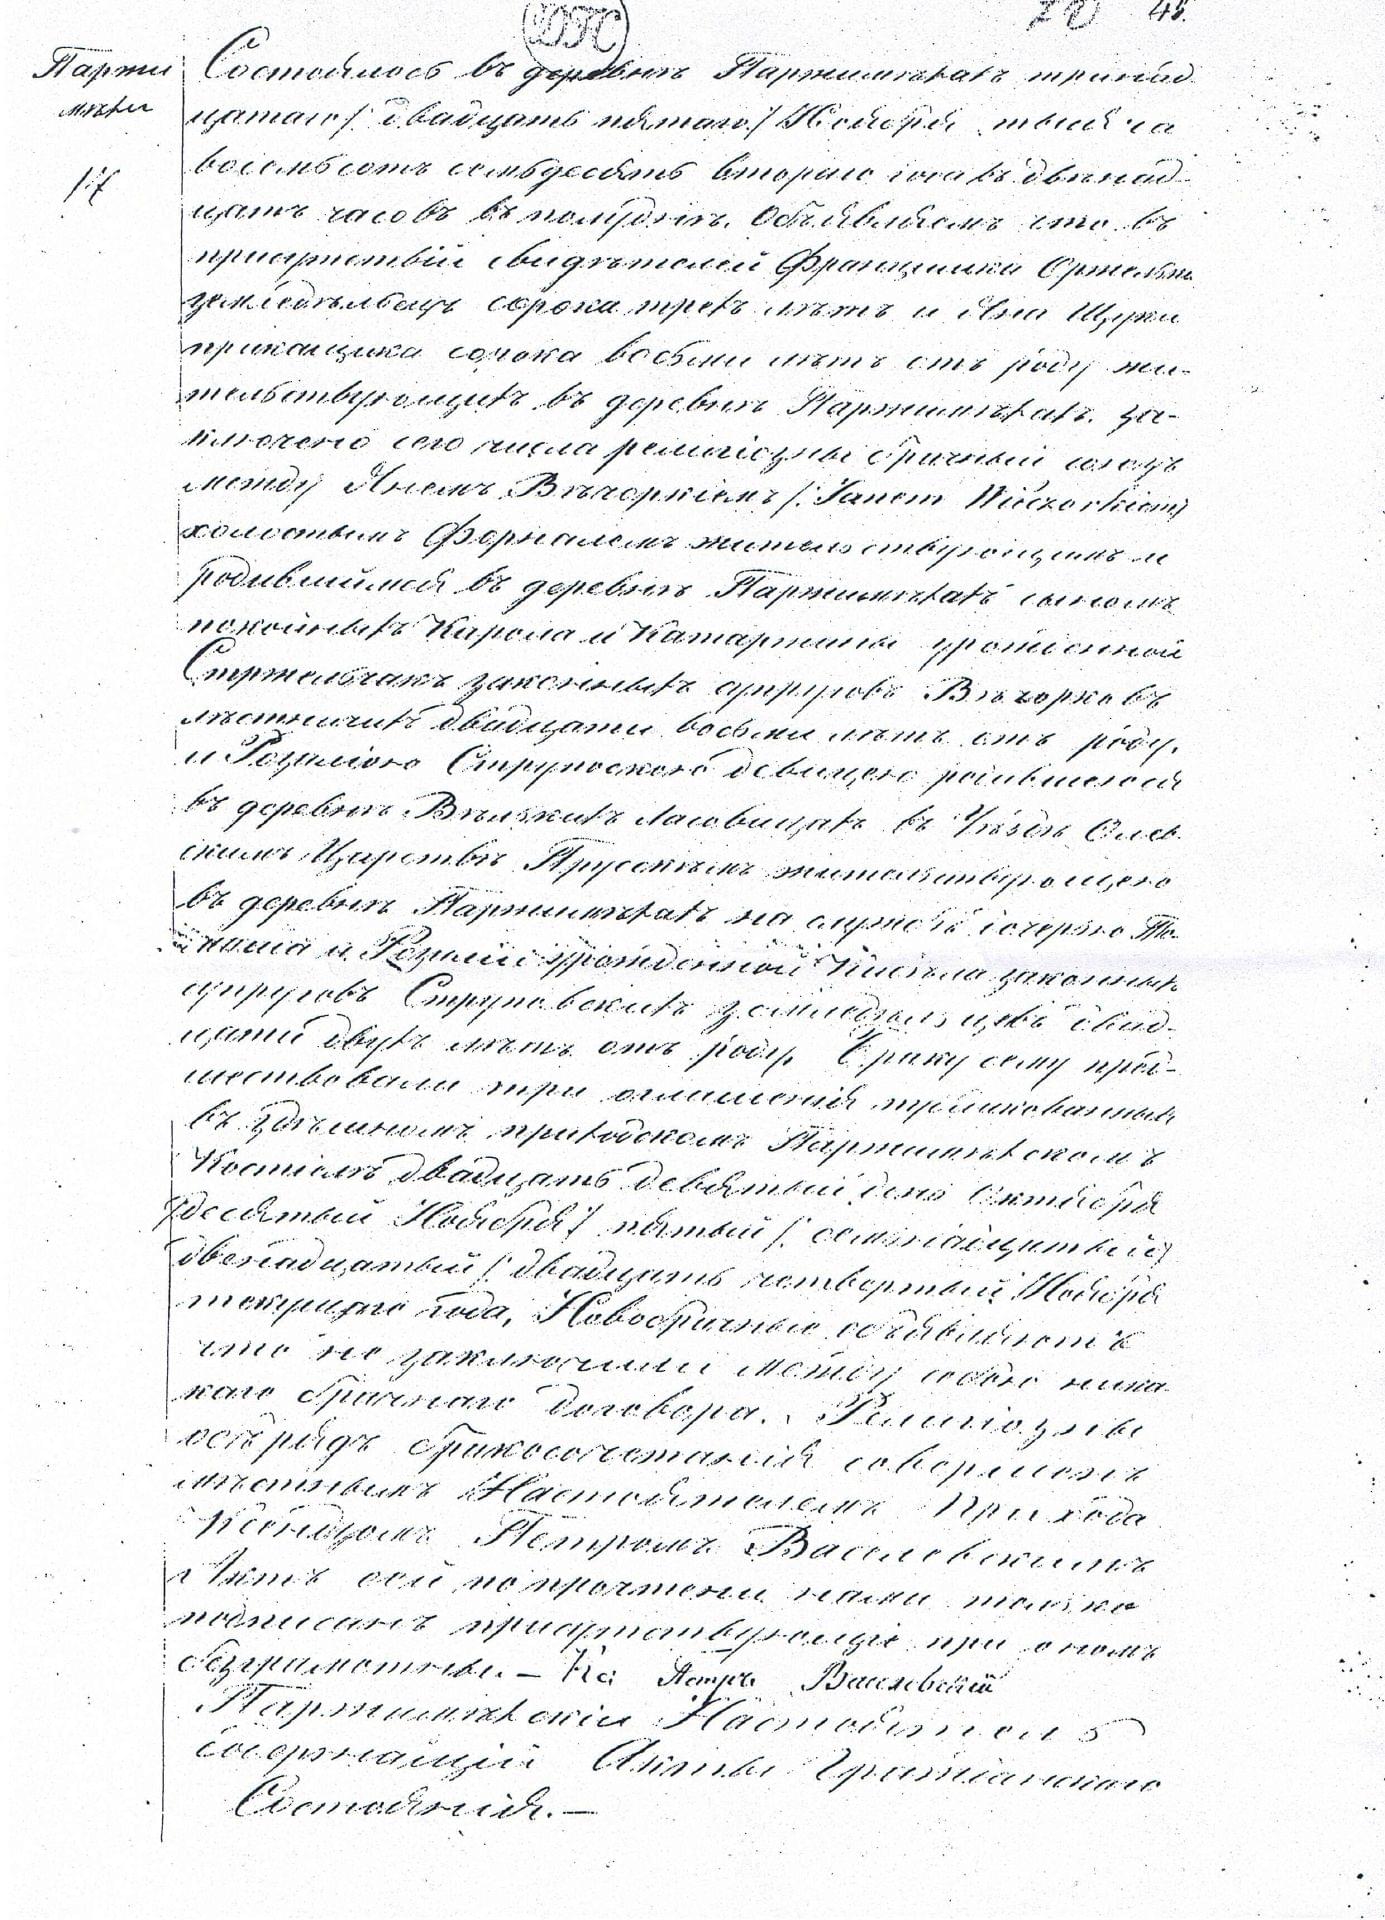 45.
Паржи
мѣхи
17
Состоялось въ деревнѣ Паржимѣхахъ тринад
цатаго /: двадцать пятаго :/ Ноября тысяча
восемьсотъ семьдесятъ втораго года въ двѣнад
цать часовъ въ полудни. Объявляемъ что въ
присутствіи свидѣтелей Францишка
земледѣльца сорока трехъ лѣтъ и Яна Щурки
прикащика сорока восьми лѣтъ отъ роду жи-
тельствующихъ въ деревнѣ Паржимѣхахъ. за-
ключено сего числа религіозны брачный союзъ
между Янемъ Вѣчоркіемъ /: Janem Wieczorkiem :/
холостымъ форналемъ жительствующимъ и
родившимся въ деревнѣ Паржимѣхахъ сыномъ
покойныхъ Карола и Катаржины урожденной
Стржельчакъ законныхъ супруговъ Вѣчорковъ
двадцати восьми лѣтъ отъ роду.
и Розаліою Струповскою девицею родившеюся
въ деревнѣ Вѣлькихъ Ласовицахъ въ Уѣздѣ Олес
скимъ Царствѣ Прусскимъ жительствующею
въ деревнѣ Паржимѣхахъ на службѣ дочерью То
маша и Розаліи урожденной законныхъ
супруговъ Струповскихъ земледѣльцевъ двад-
цати двухъ лѣтъ отъ роду. Браку сему пред-
шествовали три оглашенія публикованныя
въ здѣшномъ приходскомъ Паржимѣхскомъ
Костелѣ двадцать девятый день Октября
/десятый Ноября/ пятый /: семнадцатый :/
двенадцатый /: двадцать четвертый Ноября
текущаго года, Новобрачные объявляютъ
что не заключили между собою ника
каго брачнаго договора. Религіозны
обрядъ бракосочетанія совершенъ
мѣстнымъ Настоятелемъ Прихода
Ксендзомъ Петромъ Василевскимъ
Актъ сей по прочтени нами только
подписанъ присутствующіе при ономъ
безграмотны. — Кс: Петръ Василевскій
Паржимѣхскій Настоятель
содержащій Акты Гражданскаго
Состоянія. —